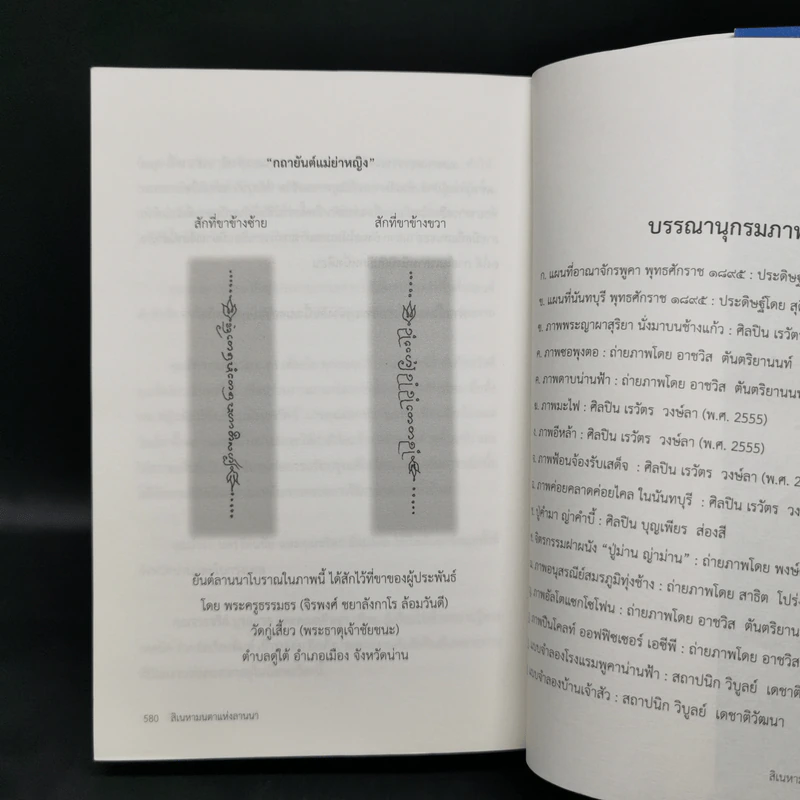 “กถายันต์แม่ย่าหญิง”
สักที่ขาข้างซ้าย
สักที่ขาข้างขวา
ยันต์ลานนาโบราณในภาพนี้ ได้สักไว้ที่ขาของผู้ประพันธ์
โดย พระครูธรรมธร (จิรพงศ์ ชยาลังกาโร ล้อมวันดี)
วัดกู่เสี้ยว (พระธาตุเจ้าชัยชนะ)
ตำบลดู่ใต้ อำเภอเมือง จังหวัดน่าน
580 สิเนหามนตาแห่งลานนา
บรรณานุกรมภาพ
ก. แผนที่อาณาจักรพูคา พุทธศักราช ๑๘๙๕ : ประดิษฐ์
ข. แผนที่นันทบุรี พุทธศักราช ๑๘๙๕ : ประดิษฐ์โดย
ฃ. ภาพพระญาผาสุริยา นั่งมาบนช้างแก้ว : ศิลปิน เรวัตร
ค. ภาพซอพุงตอ : ถ่ายภาพโดย อาชวิส ตันตริยานนท์
ฅ. ภาพดาบน่านฟ้า : ถ่ายภาพโดย อาชวิส ตันตริยานนท์
ฆ. ภาพมะไฟ : ศิลปิน เรวัตร วงษ์ลา (พ.ศ. 2555)
ง. ภาพอีหล้า : ศิลปิน เรวัตร วงษ์ลา (พ.ศ. 2555)
จ. ภาพฟ้อนจ้องรับเสด็จ : ศิลปิน เรวัตร วงษ์ลา (พ.ศ. 2
ภาพค่อยคลาดค่อยไคล ในนันทบุรี : ศิลปิน เรวัตร
ปู่คำมา ญ่าคำปี้ : ศิลปิน บุญเพียร ส่องสี
จิตรกรรมฝาผนัง “ปู่ม่าน ญ่าม่าน” : ถ่ายภาพโดย พงษ์
ภาพอนุสรณีย์สมรภูมิทุ่งช้าง : ถ่ายภาพโดย สาธิต
ภาพอัลโตแซกโซโฟน : ถ่ายภาพโดย อาชวิส ตันตริยาน
ภาพปืนโคลท์ ออฟฟิซเซอร์ เอซีพี : ถ่ายภาพโดย อาชวิส
แบบจำลองโรงแรมพูคาน่านฟ้า : สถาปนิก วิบูลย์ เดชาติ
แบบจำลองบ้านเจ้าสัว : สถาปนิก วิบูลย์ เดชาติวัฒนา